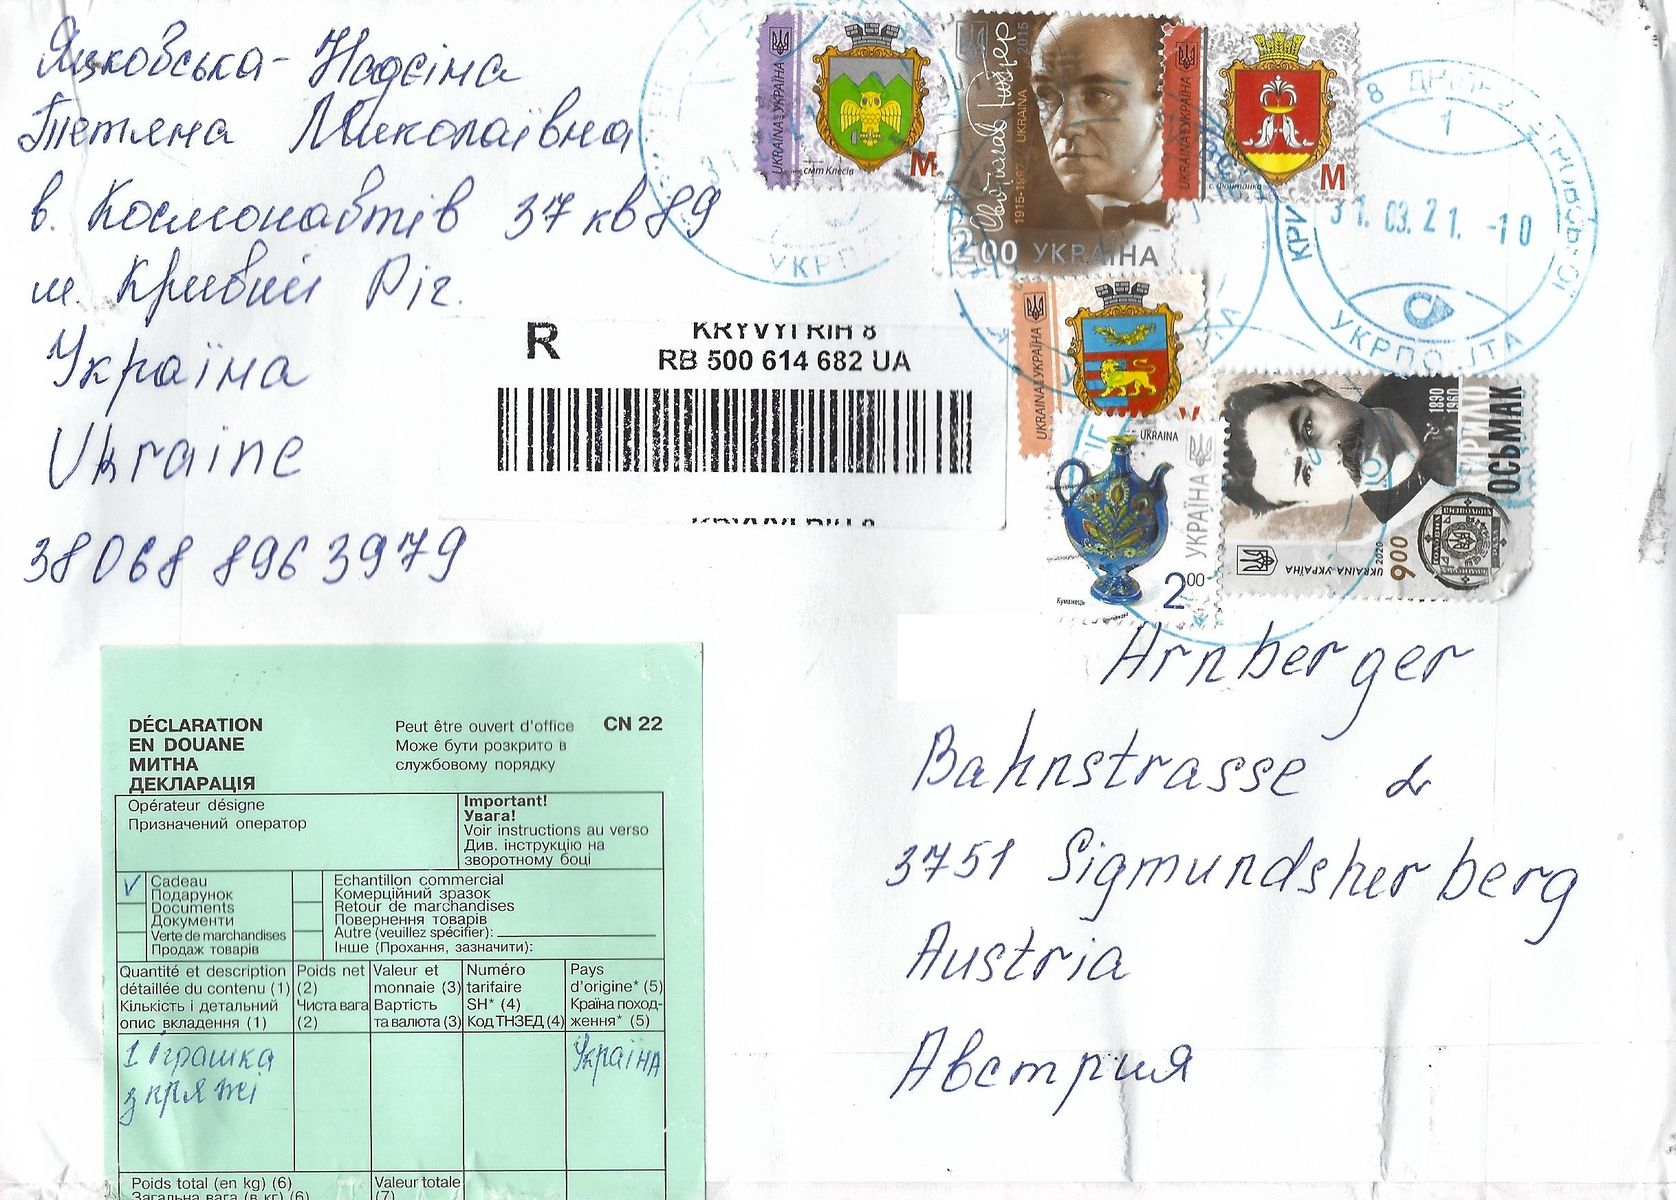 Яцковська-Надєіна
Тетяна Миколаївна
в. Космонавтів 37 кв 89
м. Кривий Ріг.
Україна
Ukraine
38068 896 3979
R
KRYVYI RIH 8
RB 500 614 682 UA
UKRAINA УКРАЇНА
смт Клесів
M
Святослав Ріхтер
1915-1997 UKRAINA 2015
2.00 УКРАЇНА
UKRAINA УКРАЇНА
с. Фонтанка
M
UKRAINA УКРАЇНА
UKRAINA
УКРАЇНА
Куманець
2.00
1890
1960
КИРИЛО
ОСЬМАК
UKRAINA УКРАЇНА
2020
9.00
УКРП
1
31.03.21.-10
УКРПОШТА
Arnberger
Bahnstrasse
3751 Sigmundsherberg
Austria
Австрия
DÉCLARATION
EN DOUANE
МИТНА
ДЕКЛАРАЦІЯ
Peut être ouvert d'office CN 22
Може бути розкрито в
службовому порядку
Opérateur désigne
Призначений оператор
Important!
Увага!
Voir instructions au verso
Див. інструкцію на
зворотному боці
V Cadeau
Подарунок
Documents
Документи
Verte de marchandises
Продаж товарів
Echantillon commercial
Комерційний зразок
Retour de marchandises
Повернення товарів
Autre (veuillez spécifier):
Інше (Прохання, зазначити):
Quantité et description
détaillée du contenu (1)
Кількість і детальний
опис вкладення (1)
Poids net
(2)
Чиста вага
(2)
Valeur et
monnaie (3)
Вартість
та валюта (3)
Numéro
tarifaire
SH* (4)
Код ТНЗЕД (4)
Pays
d'origine* (5)
Країна поход-
ження* (5)
1 Іграшка
з пряжі
Україна
Poids total (en kg) (6)
Загальна вага (в кг) (6)
Valeur totale
(7)